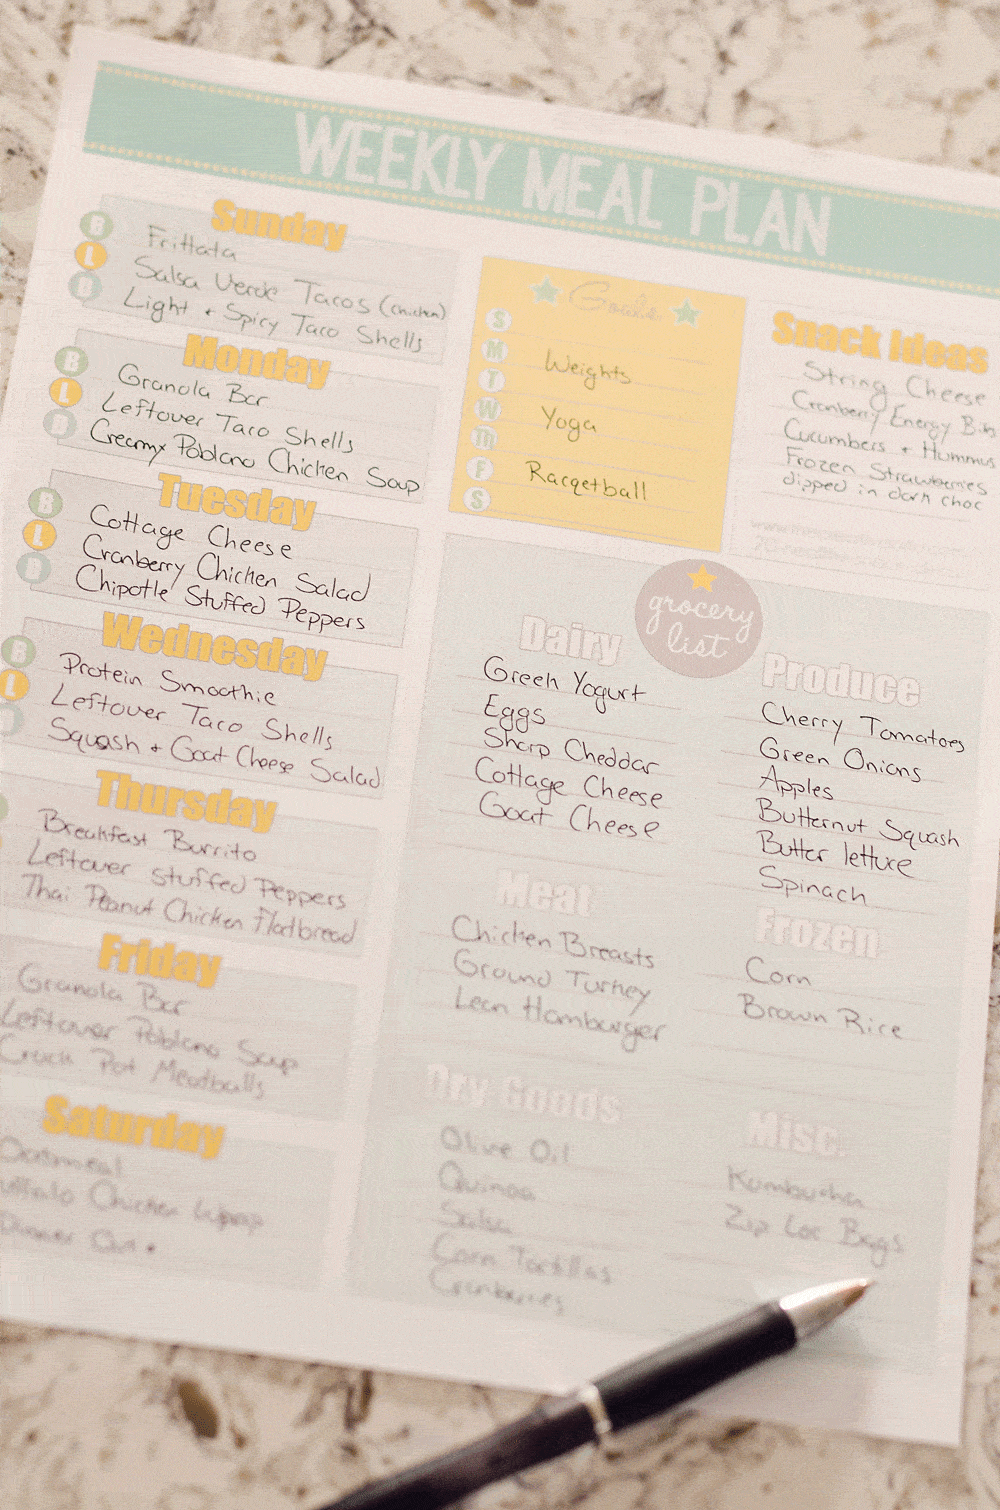 WEEKLY MEAL PLAN
Sunday
B Frittata
L Salsa Verde Tacos (chicken)
D Light + Spicy Taco Shells
Monday
B Granola Bar
L Leftover Taco Shells
D Creamy Poblano Chicken Soup
Tuesday
B Cottage Cheese
L Cranberry Chicken Salad
D Chipotle Stuffed Peppers
Wednesday
B Protein Smoothie
L Leftover Taco Shells
Squash + Goat Cheese Salad
Thursday
Breakfast Burrito
Leftover stuffed Peppers
Thai Peanut Chicken flatbread
Friday
Granola Bar
Leftover Poblano Soup
Crock Pot Meatballs
Saturday
Oatmeal
Chicken Wrap
Dinner Out
Goals
S
M Weights
T
W Yoga
Th
F Racqetball
S
Snack Ideas
String Cheese
Cranberry Energy Bites
Cucumbers + Hummus
Frozen Strawberries
dipped in dark choc
grocery
list
Dairy
Greek Yogurt
Eggs
Sharp Cheddar
Cottage Cheese
Goat Cheese
Produce
Cherry Tomatoes
Green Onions
Apples
Butternut Squash
Butter lettuce
Spinach
Meat
Chicken Breasts
Ground Turkey
Lean Hamburger
Frozen
Corn
Brown Rice
Dry Goods
Olive Oil
Quinoa
Salsa
Corn Tortillas
Cranberries
Misc.
Kombucha
Zip Loc Bags